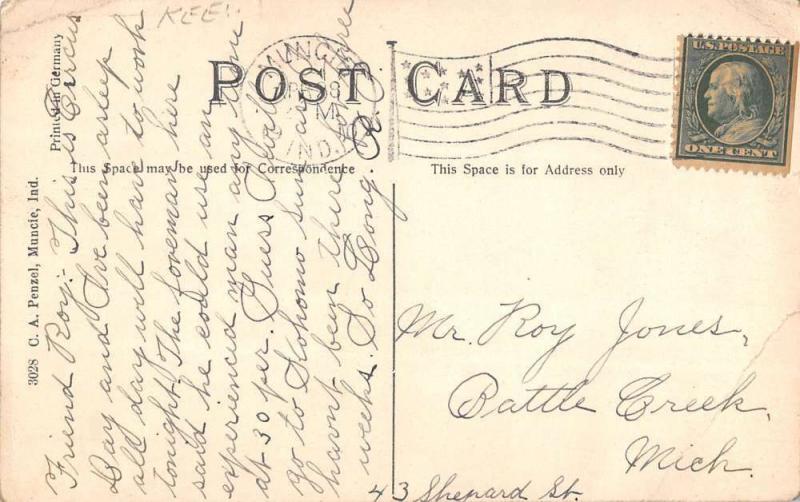 KEEN
POST CARD
U.S. POSTAGE
ONE CENT
IND.
This Space may be used for Correspondence
This Space is for Address only
Printed in Germany
3028 C. A. Penzel, Muncie, Ind.
Friend Roy:- This is Circus
Day and I've been asleep
all day will have to work
tonight. The foreman here
said he could use an
experienced man any time
at 30 per. Guess I will
go to Kokomo Sunday
havnt been there for three
weeks. So Long. R.C.
Mr. Roy Jones,
Battle Creek,
Mich.
43 Shepard St.